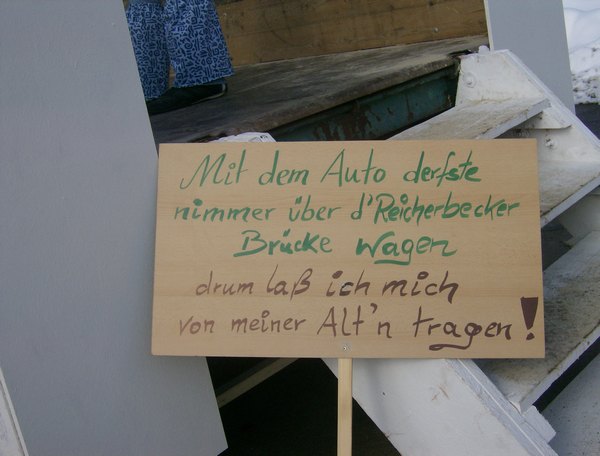 Mit dem Auto derfste
nimmer über d'Reicherbecker
Brücke wagen
drum laß ich mich
von meiner Alt'n tragen!